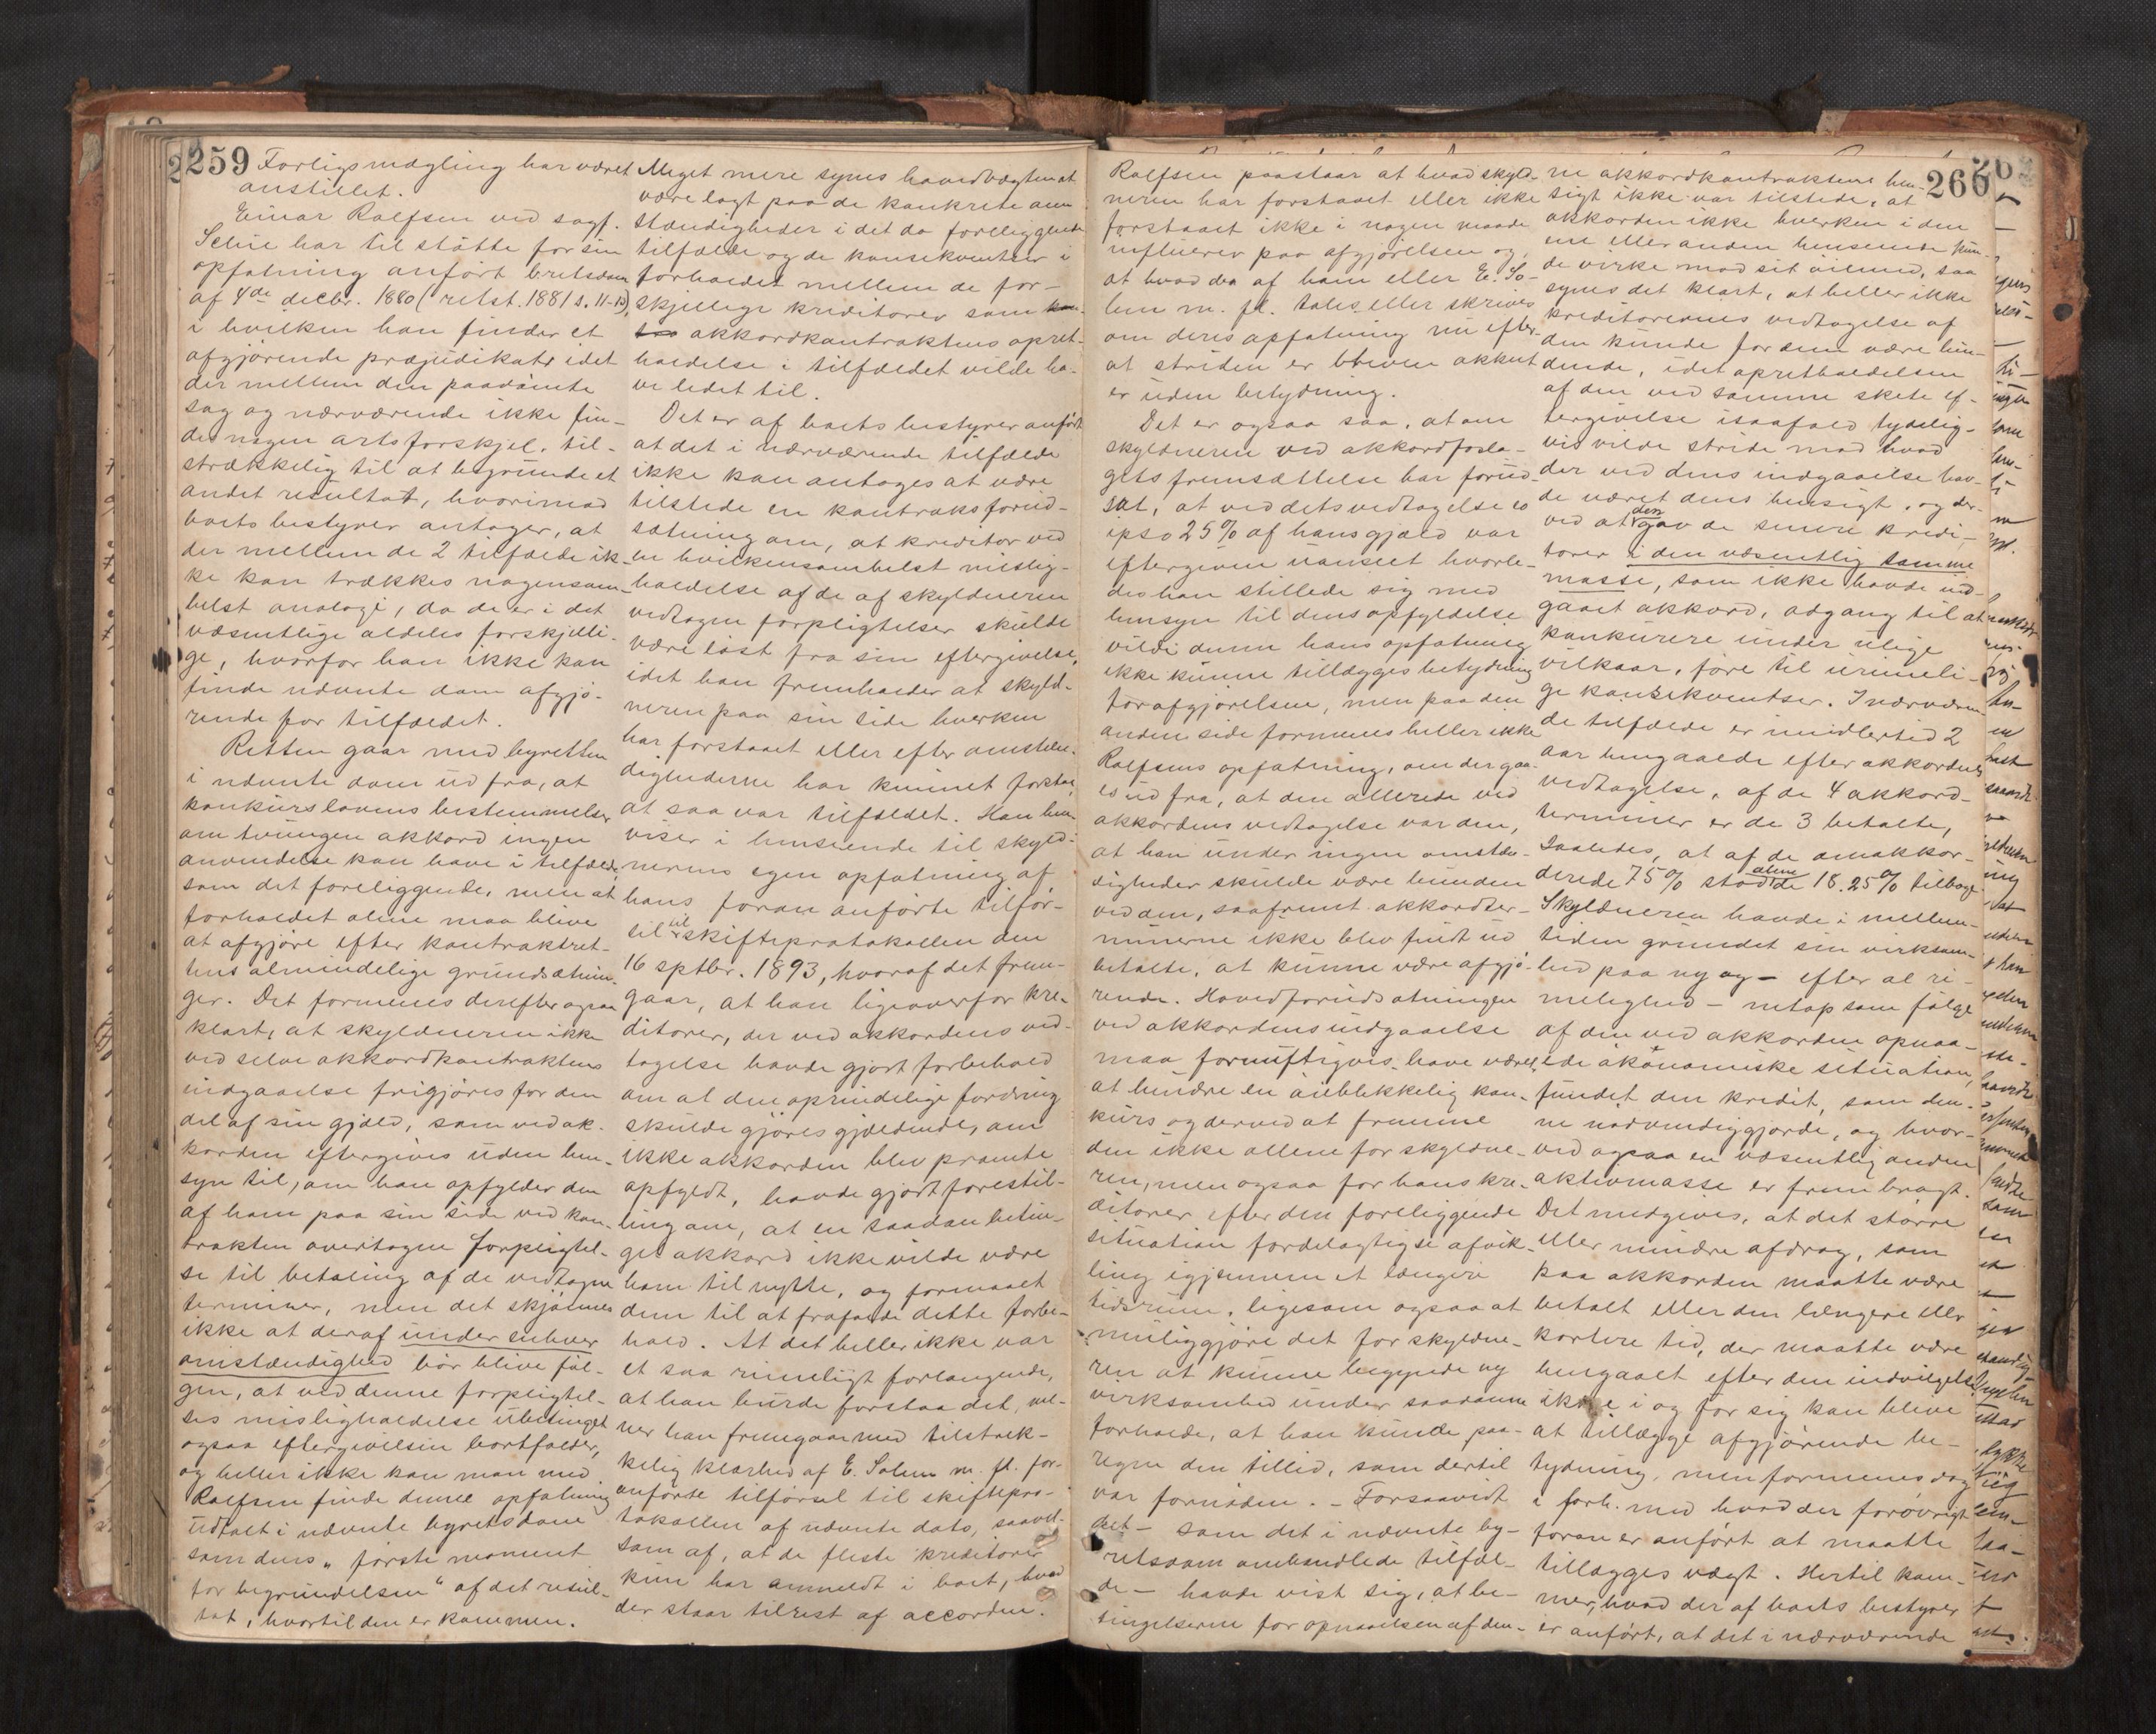 259
Forligsmægling har været
anstillet.
Einar Rolfsen ved sagf.
Schie har til støtte for sin
opfatning anført bretsdom
af 4de decbr. 1880 (retst. 1881 s. 11-13),
i hvilken han finder et
afgjørende præjudikat, idet
der mellem den paadømte
sag og nærværende ikke fin-
des nogen artsforskjel, til-
strækkelig til at begrunde et
andet resultat, hvorimod
boets bestyrer antager, at
der mellem de 2 tilfælde ik-
ke kan trækkes nogensom-
helst analogi, da de er i det
væsentlige aldeles forskjelli-
ge, hvorfor han ikke kan
finde nævnte dom afgjø-
rende for tilfældet.
Retten gaar med byretten
i nævnte dom ud fra, at
konkurslovens bestemmelser
om tvungen akkord ingen
anvendelse kan have i tilfælde
som det foreliggende, men at
forholdet alene maa blive
at afgjøre efter kontraktsret-
tens almindelige grundsætnin-
ger. Det formenes derefter ogsaa
klart, at skyldneren ikke
ved selve akkordkontraktens
indgaaelse frigjøres for den
del af sin gjæld, som ved ak-
korden eftergives uden hen-
syn til, om han opfylder den
af ham paa sin side ved kon-
trakten overtagne forpligtel-
se til betaling af de vedtagne
terminer, men det skjønnes
ikke at deraf under enhver
omstændighed bør blive føl-
gen, at ved denne forpligtel-
ses misligholdelse ubetinget
ogsaa eftergivelsen bortfalder,
og heller ikke kan man med
Rolfsen finde denne opfatning
udtalt i nævnte byretsdom
som dens „første moment
for begrundelsen“ af det resul-
tat, hvortil den er kommen.
Meget mere synes hovedvægten at
være lagt paa de konkrete om-
stændigheder i det da foreliggende
tilfælde og de konsekventser i
forholdet mellem de for-
skjellige kreditorer som
akkordkontraktens opret-
holdelse i tilfældet vilde ha-
ve ledet til.
Det er af boets bestyrer anført
at det i nærværende tilfælde
ikke kan antages at være
tilstede en kontraktsforud-
sætning om, at kreditor ved
en hvilkensomhelst mislig-
holdelse af de af skyldneren
vedtagne forpligtelser skulde
være løst fra sin eftergivelse,
idet han fremholder at skyld-
neren paa sin side hverken
har forstaaet eller efter omstæn-
dighederne har kunnet forstaa,
at saa var tilfældet. Han hen-
viser i henseende til skyld-
nerens egen opfatning af
hans foran anførte tilfør-
sel til skifteprotokollen den
16 sptbr. 1893, hvoraf det frem-
gaar, at han ligeoverfor kre-
ditorer, der ved akkordens ved-
tagelse havde gjort forbehold
om at den oprindelige fordring
skulde gjøres gjældende, om
ikke akkorden blev promte
opfyldt, havde gjort forestil-
ling om, at en saadan betin-
get akkord ikke vilde være
ham til nytte, og formaaet
dem til at frafalde dette forbe-
hold. At det heller ikke var
et saa rimeligt forlangende,
at han burde forstaa det, me-
ner han fremgaar med tilstræk-
kelig klarhed af E. Solem m. fl. for-
anførte tilførsel til skiftepro-
tokollen af nævnte dato, saavel-
som af, at de fleste kreditorer
kun har anmeldt i boet, hvad
der staar tilrest af accorden.
260
Rolfsen paastaar at hvad skyld-
neren har forstaaet eller ikke
forstaaet ikke i nogen maade
influerer paa afgjørelsen og
at hvad der af ham eller E. So-
lem m. fl. tales eller skrives
om deres opfatning nu efter
at striden er bleven akkut
er uden betydning.
Det er ogsaa saa, at om
skyldneren ved akkordforsla-
gets fremsættelse har forud-
sat, at ved dets vedtagelse eo
ipso 25% af hans gjæld var
eftergiven uanseet hvorle-
des han stillede sig med
hensyn til dens opfyldelse
vilde denne hans opfatning
ikke kunne tillægges betydning
for afgjørelsen, men paa den
anden side formenes heller ikke
Rolfsens opfatning, om der gaa-
es ud fra, at den allerede ved
akkordens vedtagelse var den,
at han under ingen omstæn-
digheder skulde være bunden
ved den, saafremt akkordter-
minerne ikke blev fuldt ud
betalte, at kunne være afgjø-
rende. Hovedforudsætningen
ved akkordens indgaaelse
maa fornuftigvis have været,
at hindre en øieblikkelig kon-
kurs og derved at fremme
den ikke allene for skyldne-
ren, men ogsaa for hans kre-
ditorer efter den foreliggende
situation fordelagtigste afvik-
ling igjennem et længere
tidsrum, ligesom ogsaa at
muliggjøre det for skyldne-
ren at kunne begynde ny
virksomhed under saadanne
forholde, at han kunde paa-
regne den tillid, som dertil
var fornøden. – Forsaavidt
det – som det i nævnte by-
retsdom omhandlede tilfæl-
de – havde vist sig, at be-
tingelserne for opnaaelsen af den-
ne akkordkontraktens hen-
sigt ikke var tilstede, at
akkorden ikke hverken i den
ene eller anden henseende kun-
de virke mod sit øiemed, saa
synes det klart, at heller ikke
kreditorernes vedtagelse af
den kunde for dem være bin-
dende, idet opretholdelsen
af den ved samme skete ef-
tergivelse isaafald tydelig-
vis vilde stride mod hvad
der ved dens indgaaelse hav-
de været dens hensigt, og der-
ved at den gav de senere kredi-
torer i den væsentlig samme
masse, som ikke havde ind-
gaaet akkord, adgang til at
konkurere under ulige
vilkaar, føre til urimeli-
ge konsekventser. I nærværen-
de tilfælde er imidlertid 2
aar hengaaede efter akkordens
vedtagelse, af de 4 akkord-
terminer er de 3 betalte,
saaledes, at af de omakkor-
derede 75% stod alene de 18.25% tilbage.
Skyldneren havde i mellem-
tiden grundet sin virksom-
hed paa ny og – efter al ri-
melighed – netop som følge
af den ved akkorden opnaa-
ede økonomiske situation,
fundet den kredit, som den-
ne nødvendiggjorde, og hvor-
ved ogsaa en væsentlig anden
aktivmasse er frembragt.
Det medgives, at det større
eller mindre afdrag, som
paa akkorden maatte være
betalt eller den længere eller
kortere tid, der maatte være
hengaaet efter den indvilgelse
ikke i og for sig kan blive
at tillægge afgjørende be-
tydning, men formenes dog
i forb. med hvad der forøvrigt
foran er anført at maatte
tillægges vægt. Hertil kom-
mer, hvad der af boets bestyrer
er anført, at det i nærværende